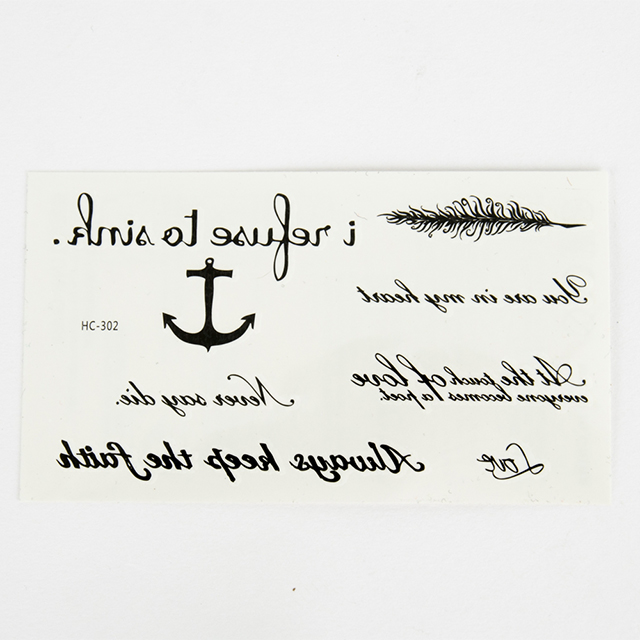 i refuse to sink.
You are in my heart
HC-302
At the touch of love
everyone becomes a poet.
Never say die.
Love
Always keep the faith